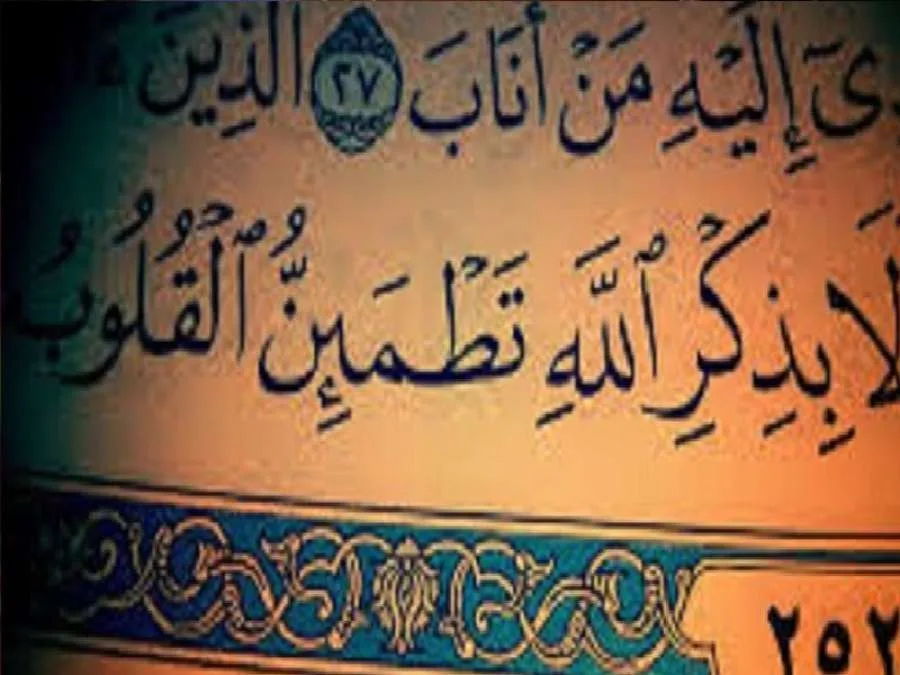 دِىٓ إِلَيْهِ مَنْ أَنَابَ ٢٧ ٱلَّذِينَ
لَا بِذِكْرِ ٱللَّهِ تَطْمَئِنُّ ٱلْقُلُوبُ
٢٥٢